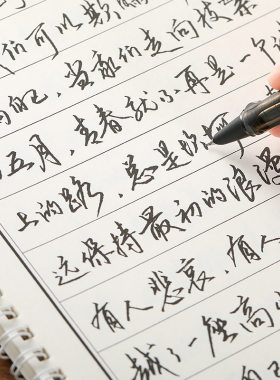 们可以欺骗
自己，当我们走向枝繁
五月，青春就不再是一个
上的路，总是
远保持最初的浪漫
有人悲哀，有人
越了一座高